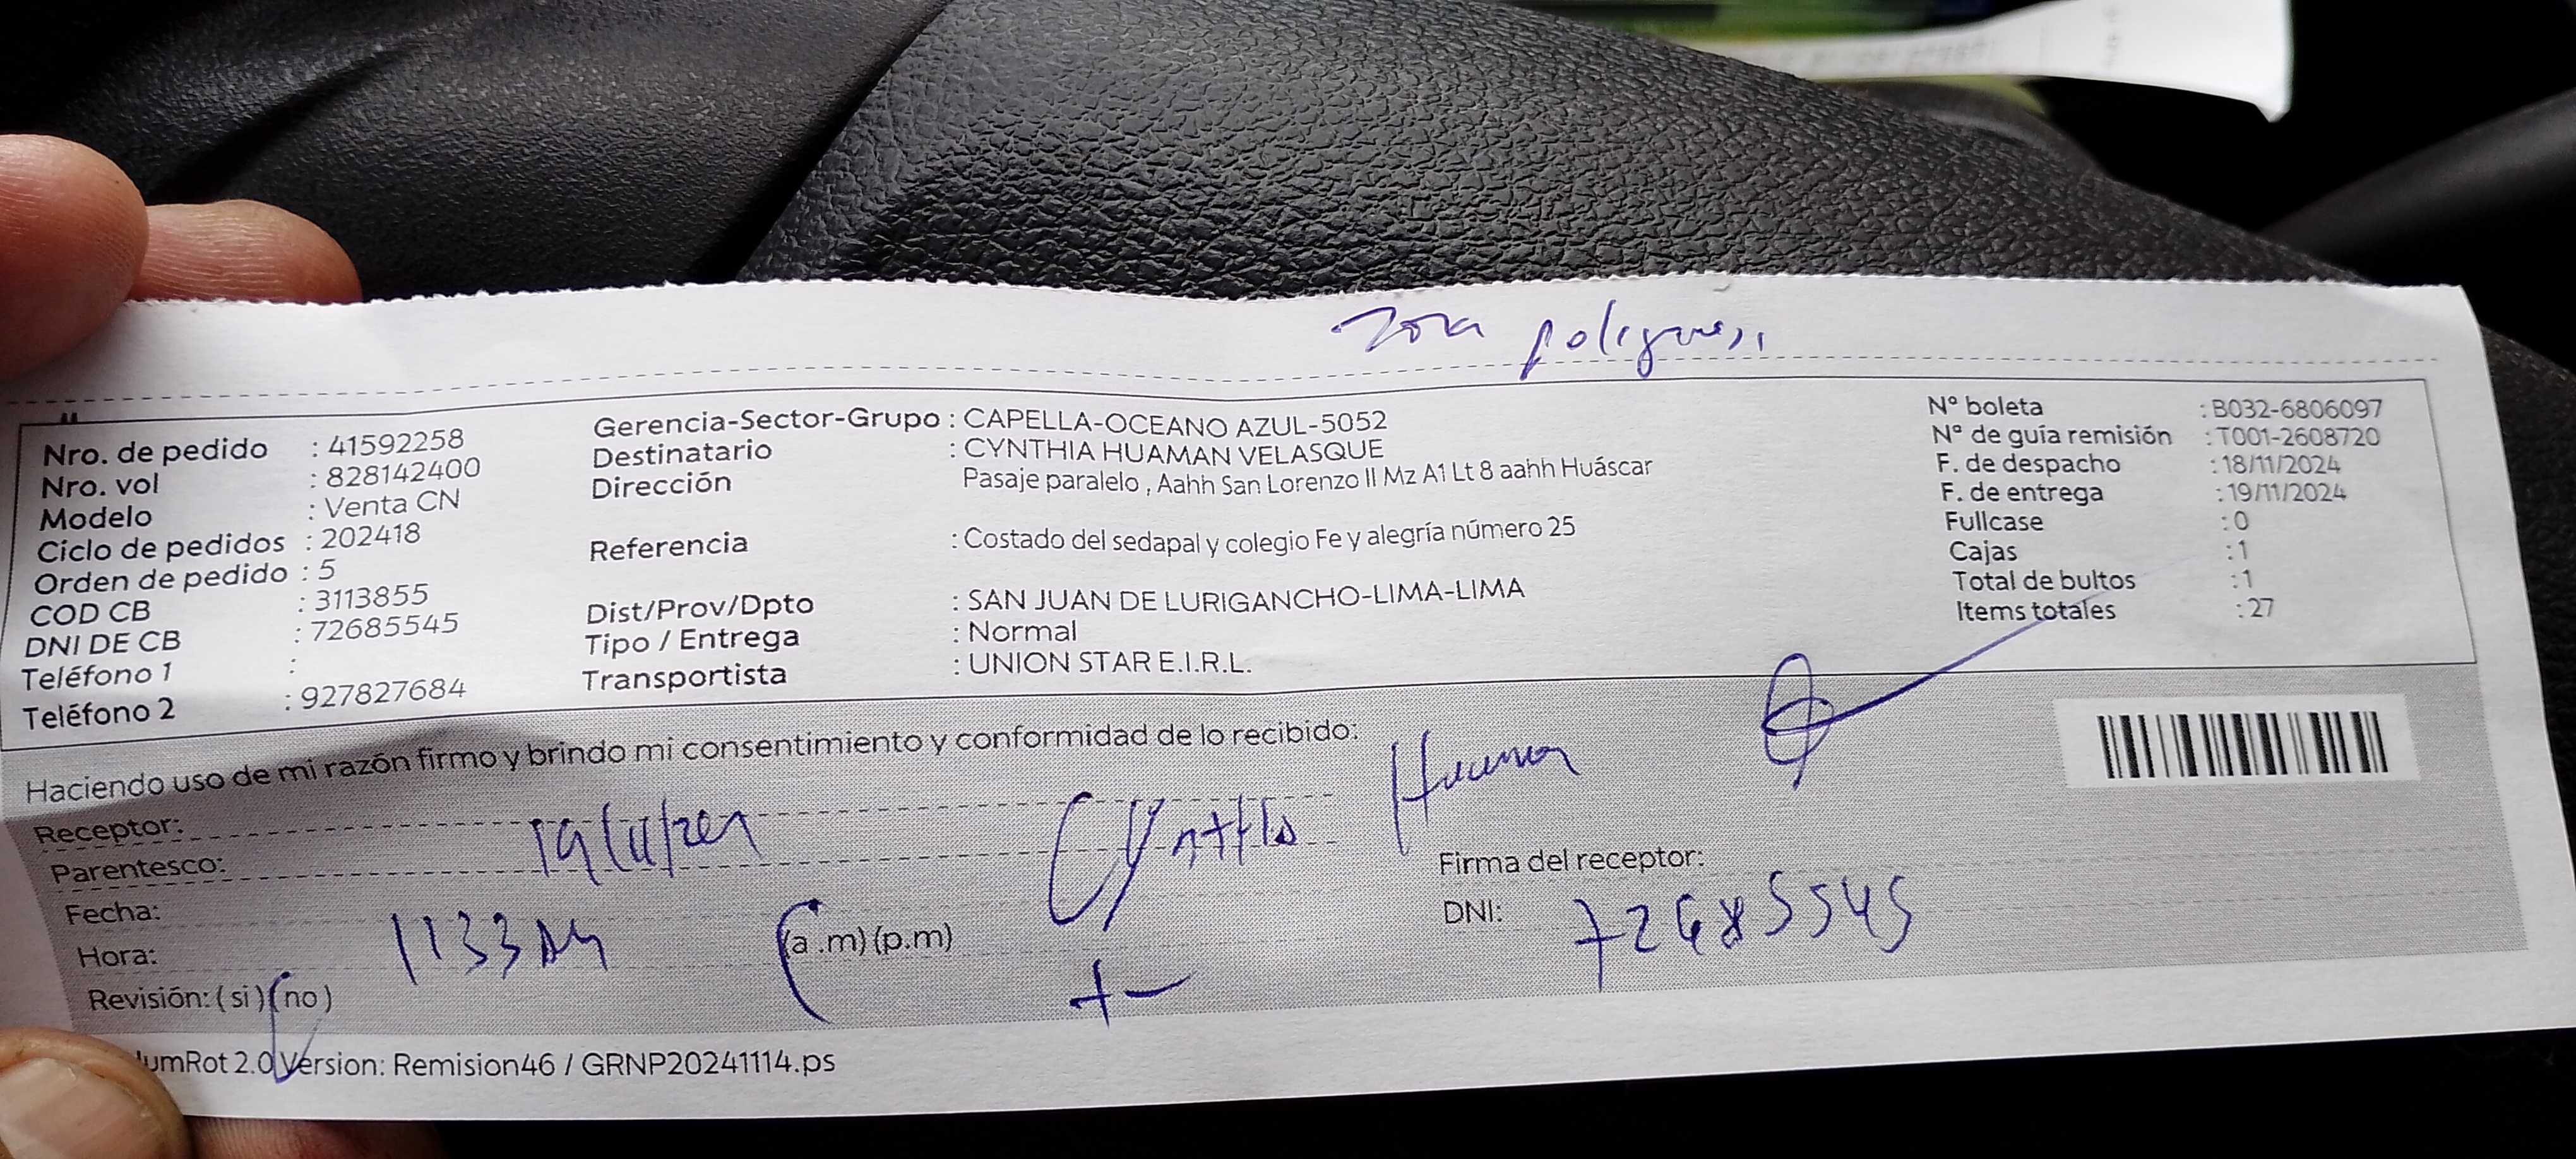 Zona peligrosa
Nro. de pedido : 41592258
Nro. vol : 828142400
Modelo : Venta CN
Ciclo de pedidos : 202418
Orden de pedido : 5
COD CB : 3113855
DNI DE CB : 72685545
Teléfono 1 :
Teléfono 2 : 927827684
Gerencia-Sector-Grupo : CAPELLA-OCEANO AZUL-5052
Destinatario : CYNTHIA HUAMAN VELASQUE
Dirección Pasaje paralelo , Aahh San Lorenzo II Mz A1 Lt 8 aahh Huáscar
Referencia : Costado del sedapal y colegio Fe y alegría número 25
Dist/Prov/Dpto : SAN JUAN DE LURIGANCHO-LIMA-LIMA
Tipo / Entrega : Normal
Transportista : UNION STAR E.I.R.L.
N° boleta : B032-6806097
N° de guía remisión : T001-2608720
F. de despacho : 18/11/2024
F. de entrega : 19/11/2024
Fullcase : 0
Cajas : 1
Total de bultos : 1
Items totales : 27
Haciendo uso de mi razón firmo y brindo mi consentimiento y conformidad de lo recibido:
Receptor: Cynthia Huaman
Parentesco:
Fecha:
Hora: 1133 AM (a .m) (p.m)
+-
Revisión: ( si ) ( no )
Firma del receptor:
DNI: 72685545
umRot 2.0 Version: Remision46 / GRNP20241114.ps